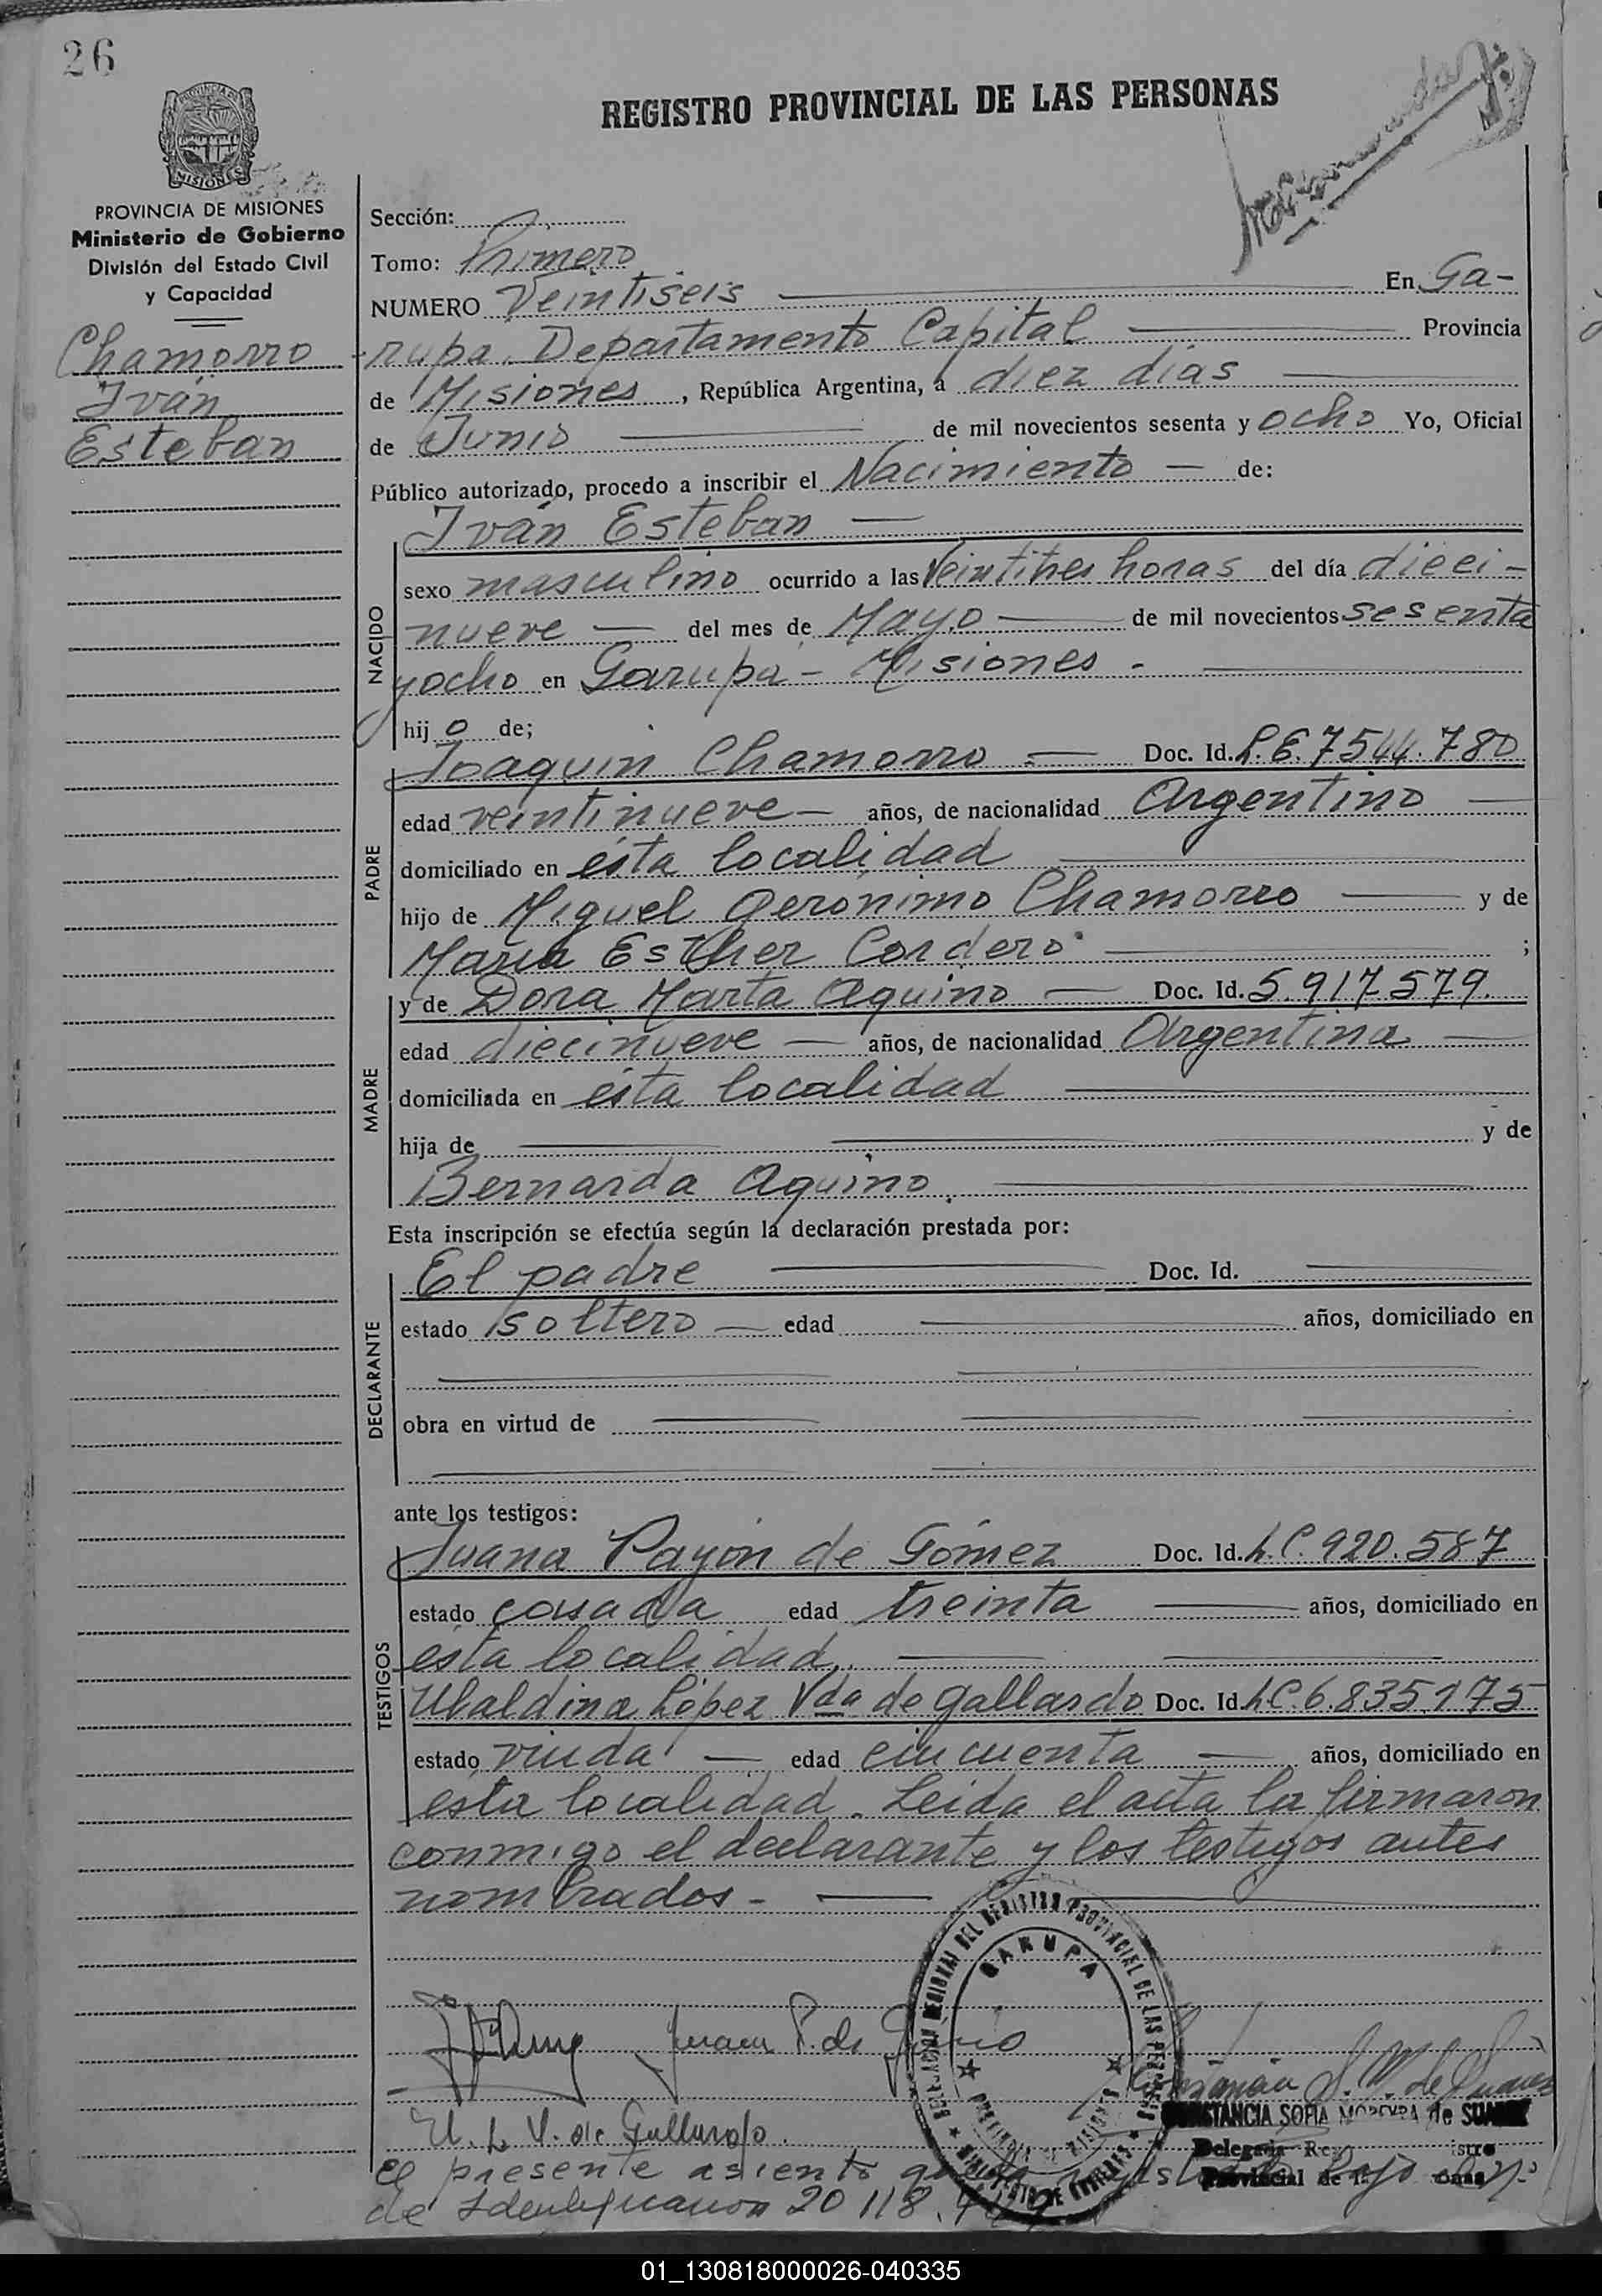 26
REGISTRO PROVINCIAL DE LAS PERSONAS
MISIONES
PROVINCIA DE MISIONES
Ministerio de Gobierno
División del Estado Civil
y Capacidad
Chamorro
Iván
Esteban
Sección:
Tomo: Primero
NUMERO Veintiseis En Ga-
-rupa. Departamento Capital Provincia
de Misiones, República Argentina, a diez días
de Junio de mil novecientos sesenta y ocho Yo, Oficial
Público autorizado, procedo a inscribir el Nacimiento de:
Iván Esteban
NACIDO
sexo masculino ocurrido a las Veintitres horas del día dieci-
nueve del mes de Mayo de mil novecientos sesenta
y ocho en Garupa - Misiones -
hij o de;
Joaquin Chamorro Doc. Id. L.E. 7544.780
PADRE
edad veintinueve años, de nacionalidad Argentino
domiciliado en ésta localidad
hijo de Miguel Gerónimo Chamorro y de
María Esther Cordero ;
MADRE
y de Dora Marta Aquino Doc. Id. 5.917.579.
edad diecinueve años, de nacionalidad Argentina
domiciliada en ésta localidad
hija de y de
Bernarda Aquino.
Esta inscripción se efectúa según la declaración prestada por:
DECLARANTE
El padre Doc. Id.
estado soltero edad años, domiciliado en
obra en virtud de
ante los testigos:
TESTIGOS
Juana Payón de Gómez Doc. Id. L.C. 920.587
estado casada edad treinta años, domiciliado en
ésta localidad.
Ubaldina López Vda de Gallardo Doc. Id. L.C. 6.835.175
estado viuda edad cincuenta años, domiciliado en
ésta localidad. Leida el acta la firmaron
conmigo el declarante y los testigos antes
nombrados -
DELEGACION REGIONAL DEL REGISTRO PROVINCIAL DE LAS PERSONAS
GARUPA
PROVINCIA DE MISIONES
MINISTERIO DE GOBIERNO
Juana P. de Gómez
U. L. V. de Gallardo.
CONSTANCIA SOFIA MOREYRA de SUAREZ
Delegada Re istro
Provincial de l onas
El presente asiento bajo el Nº
de Identificación 20 118.
01_130818000026-040335